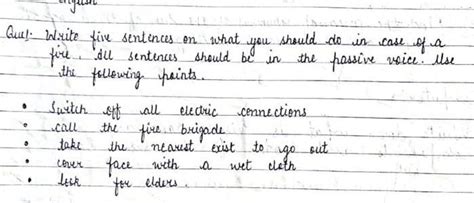 English
Ques. Write five sentences on what you should do in case of a
fire. All sentences should be in the passive voice. Use
the following points.
• Switch off all electric connections
• call the fire brigade
• take the nearest exist to go out
• cover face with a wet cloth
• look for elders.